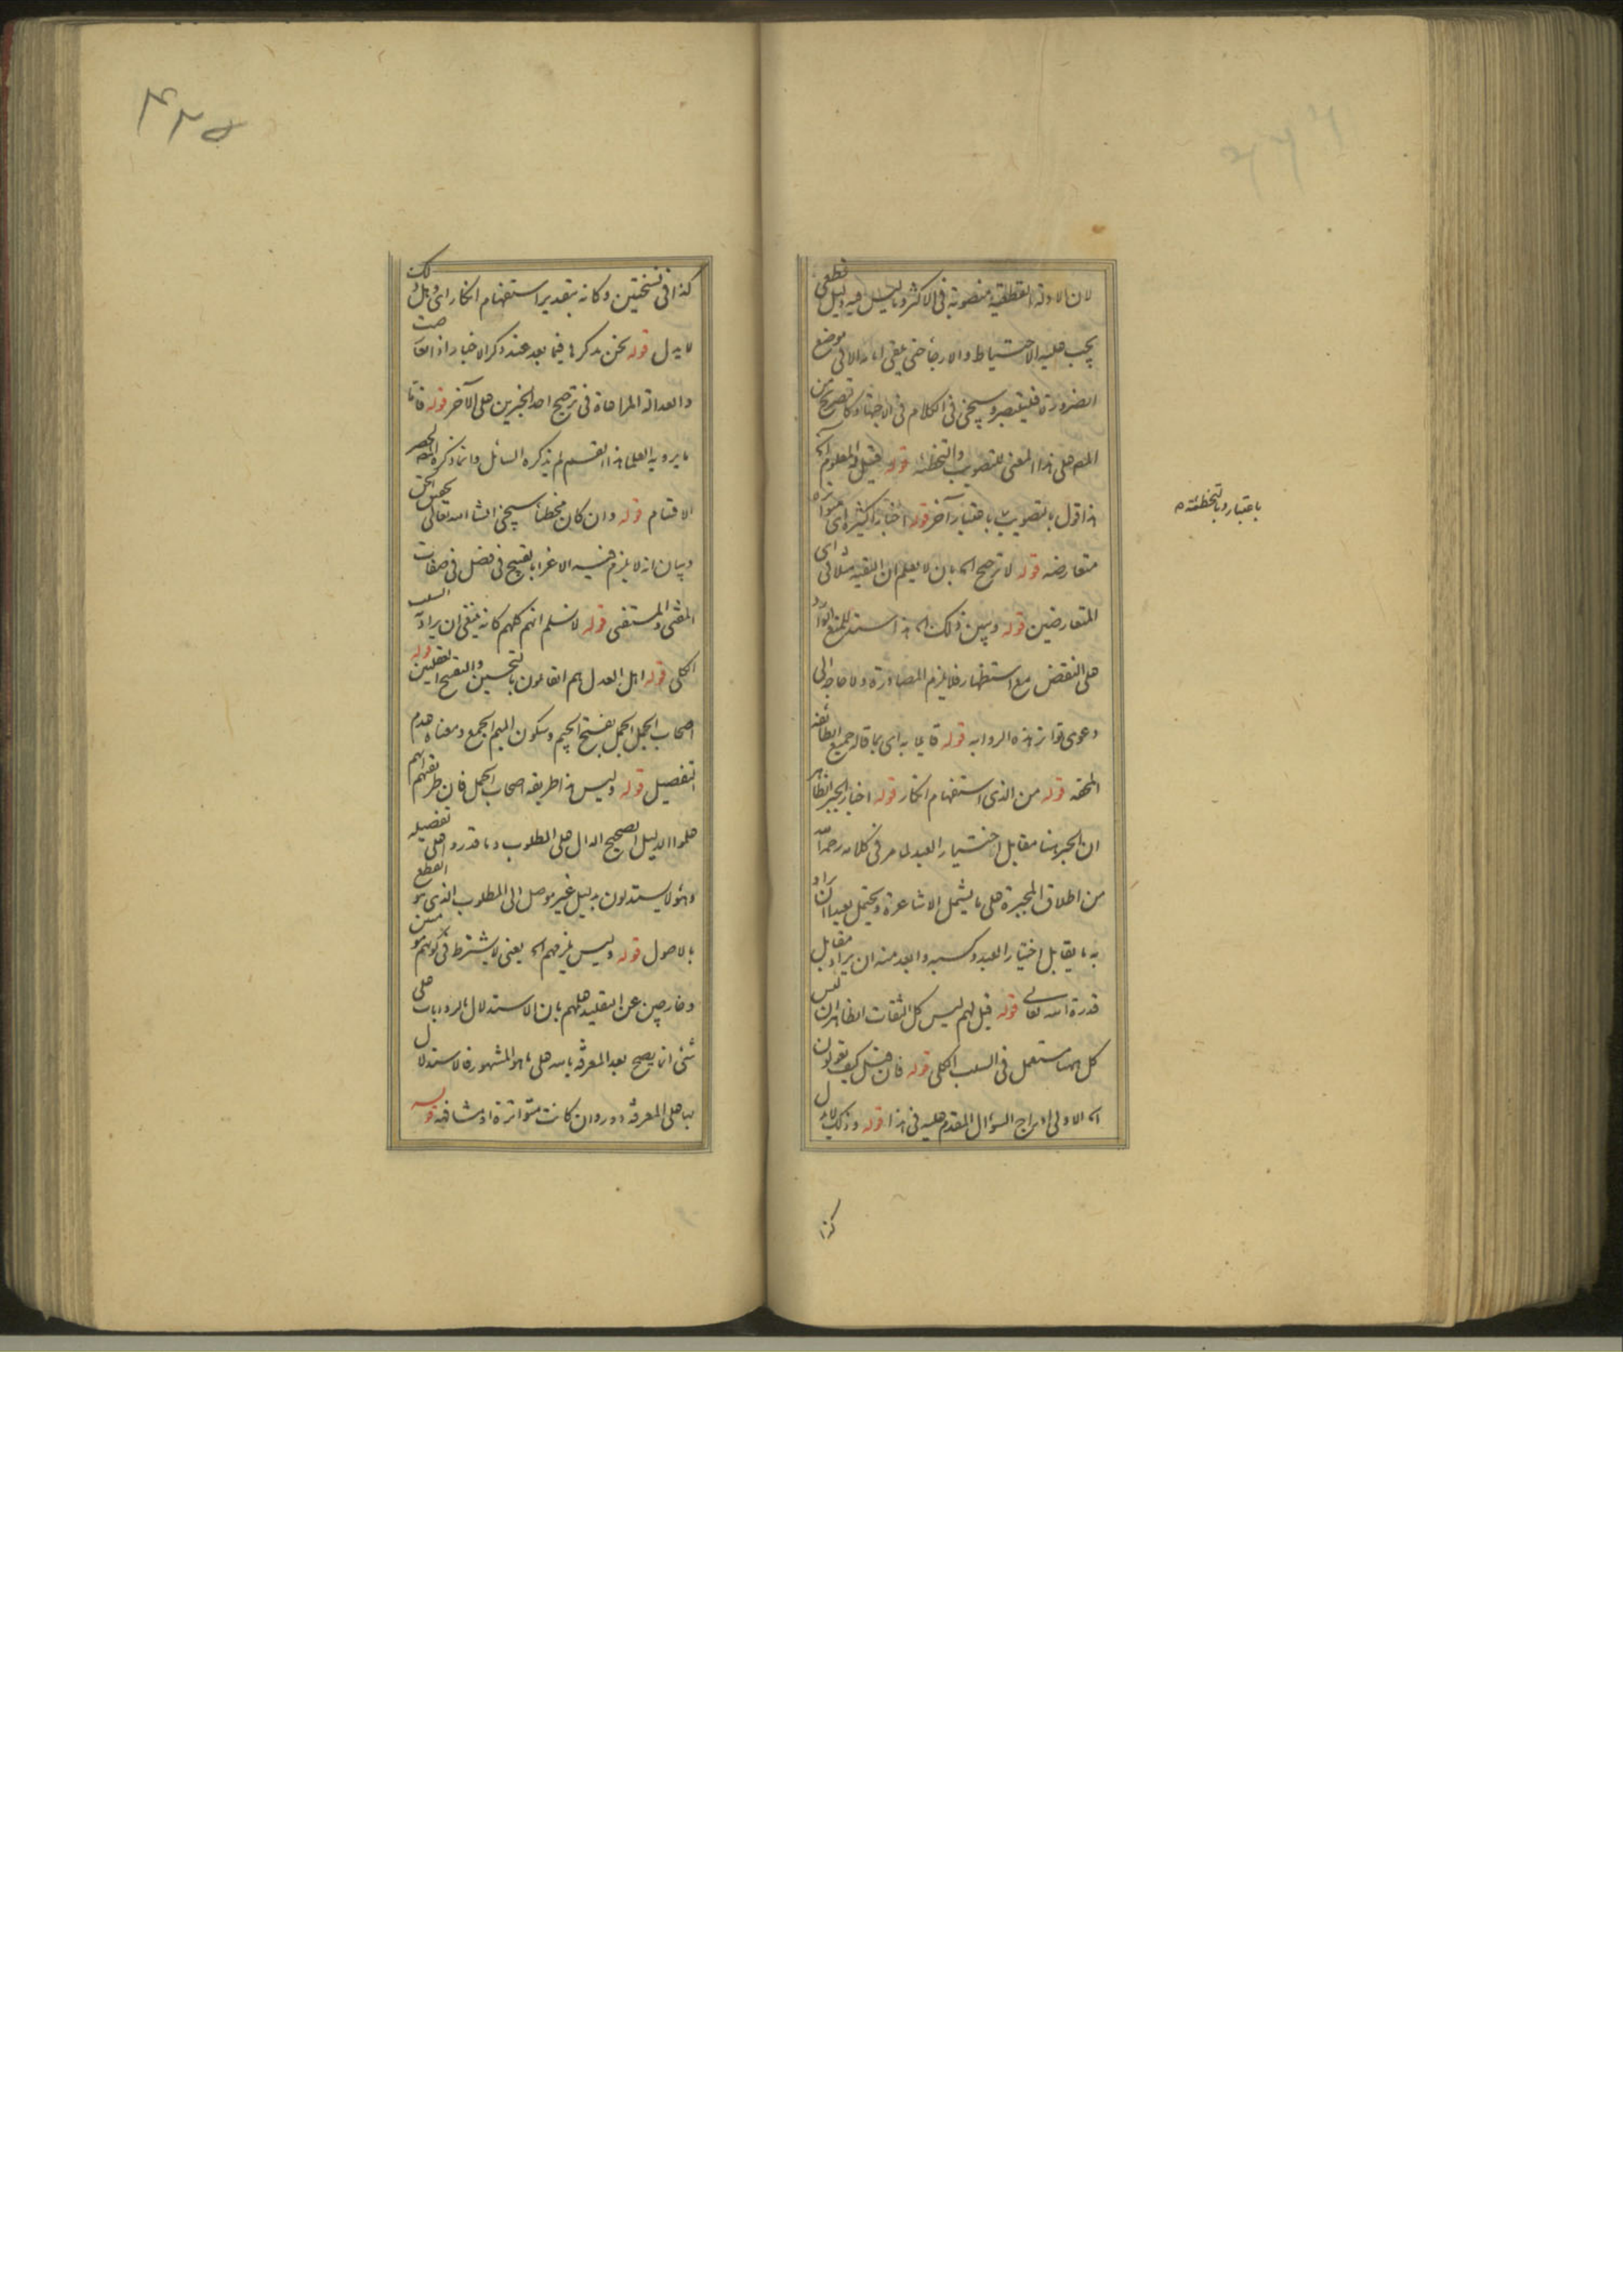 لان الادلة القطعية منصوبة فى الاكثر وما ليس فيه دليل قطعى
يجب عليه الاحتياط والارجاء حتى يلقى امامه الا فى موضع
الضرورة فليتبصر وسيجئ فى الكلام فى الاجتهاد تصريح من
المصه على هذا المعنى للتصويب والتخطئة قوله قيل له المعلوم اه
هذا قول بالتصويب باعتبار آخر قوله اخبارا كثيرة اى متواترة
متعارضه قوله لا ترجح اه بان لا يعلم ان التقيه مثلا فى اى
المتعارضين قوله ويبين ذلك اه هذا سند للمنع الوارد
على النقض مع استظهار فلا يلزم المصادرة ولا حاجة الى
دعوى تواتر هذه الروايه قوله قايما به اى بما قاله جميع الطائفه
المحقه قوله من الذى استفهام انكار قوله اخبار الجبر الظاهر
ان الجبر هنا مقابل اختيار العبد لما مر فى كلامه رحمه الله
من اطلاق المجبرة على ما يشمل الاشاعرة ويحتمل بعيدا ان يراد
به ما يقابل اختيار العبد وكسبه وابعد منه ان يراد مقابل
قدرة الله تعالى قوله قيل لهم ليس كل الثقات الظاهر ان ليس
كل ههنا مستعمل فى السلب الكلى قوله فان قيل كيف تعولون
اه الاولى ادراج السؤال المقدم عليه فى هذا قوله وذلك لا
كذا
باعتبار وبالتخطئة
٤٢٥
كذا فى نسختين وكانه بتقدير استفهام انكار اى وهل ذلك
لا يدل قوله نحن نذكرها فيما بعد عند ذكر الاخبار اذا تعارضت
والعدالة المراعاة فى ترجيح احد الخبرين على الآخر قوله فاما
ما يرويه العلما هذا القسم لم يذكره السائل وانما ذكره المصه لحصر
الاقسام قوله وان كان مخطئا سيجئ انشا الله تعالى تحقيق الحق
وبيان انه لا يلزم فيه الاغرا بالقبيح فى فصل فى صفات
المفتى والمستفتى قوله لا نسلم انهم كلهم كانه ينبغى ان يراد السلب
الكلى قوله اهل العدل هم القائلون بالتحسين والتقبيح العقليين قوله
اصحاب الجمل الجمل بفتح الجيم وسكون الميم الجمع ومعناه عدم
التفصيل قوله وليس هذا طريقه اصحاب الجمل فان طريقتهم انهم
علموا الدليل الصحيح الدال على المطلوب وما قدروا على تفصيله
وهؤلا يستدلون بدليل غير موصل الى المطلوب الذى هو القطع
بالاصول قوله وليس يلزمهم اه يعنى لا يشترط فى كونهم مومنين
وخارجين عن التقليد علمهم بان الاستدلال بالروايات على
شئ انما يصح بعد المعرفة بالله على ما هو المشهور فالاستدلال
بها على المعرفة دور وان كانت متواترة او مشافهة قوله